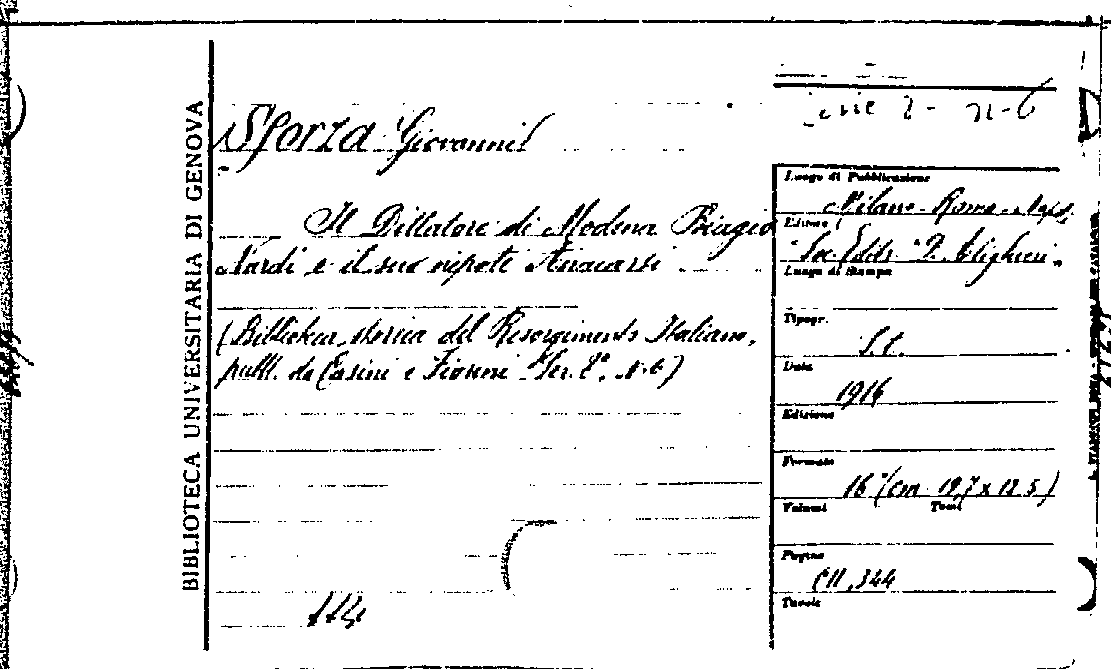 BIBLIOTECA UNIVERSITARIA DI GENOVA
Sforza Giovanni
Il Dittatore di Modena Biagio
Nardi e il suo nipote Anacarsi
(Biblioteca storica del Risorgimento Italiano,
pubbl. da Casini e Fiorini Ser. 8°. N. 6)
Luogo di Pubblicazione
Milano - Roma - Nap.
Editore
Soc. Editr. "D. Alighieri"
Luogo di Stampa
Tipogr.
S.t.
Data
1916
Edizione
Formato
16° (cm 19,7 x 12 5)
Volumi Tomi
Pagine
CII, 344
Tavole